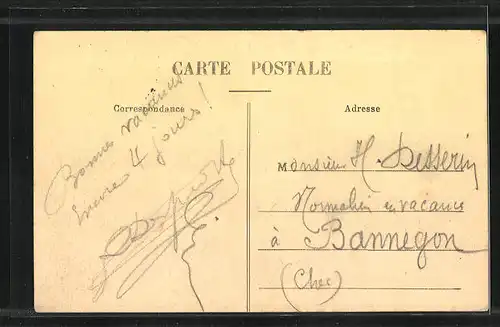 CARTE POSTALE
Correspondance
Bonnes vacances
Encore 4 jours !
Adresse
Monsieur H. Desserin
Normalien en vacance
à Bannegon
(Cher)